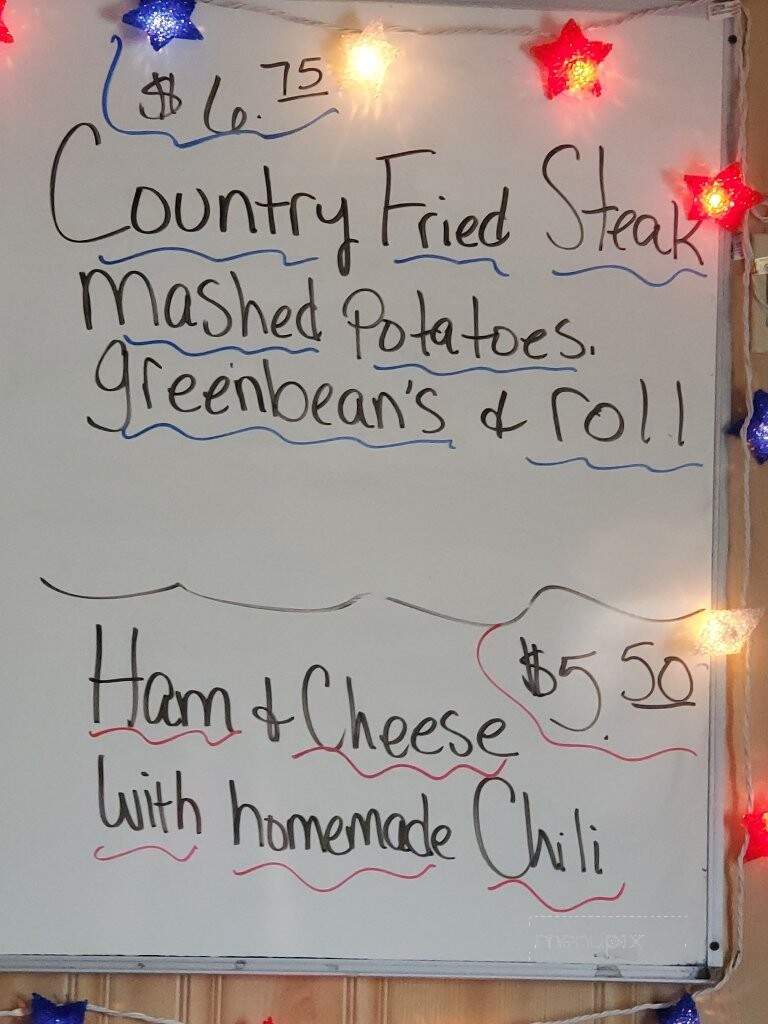 $6.75
Country Fried Steak
Mashed Potatoes.
greenbean's & roll
$5.50
Ham & Cheese
with homemade Chili
menupix